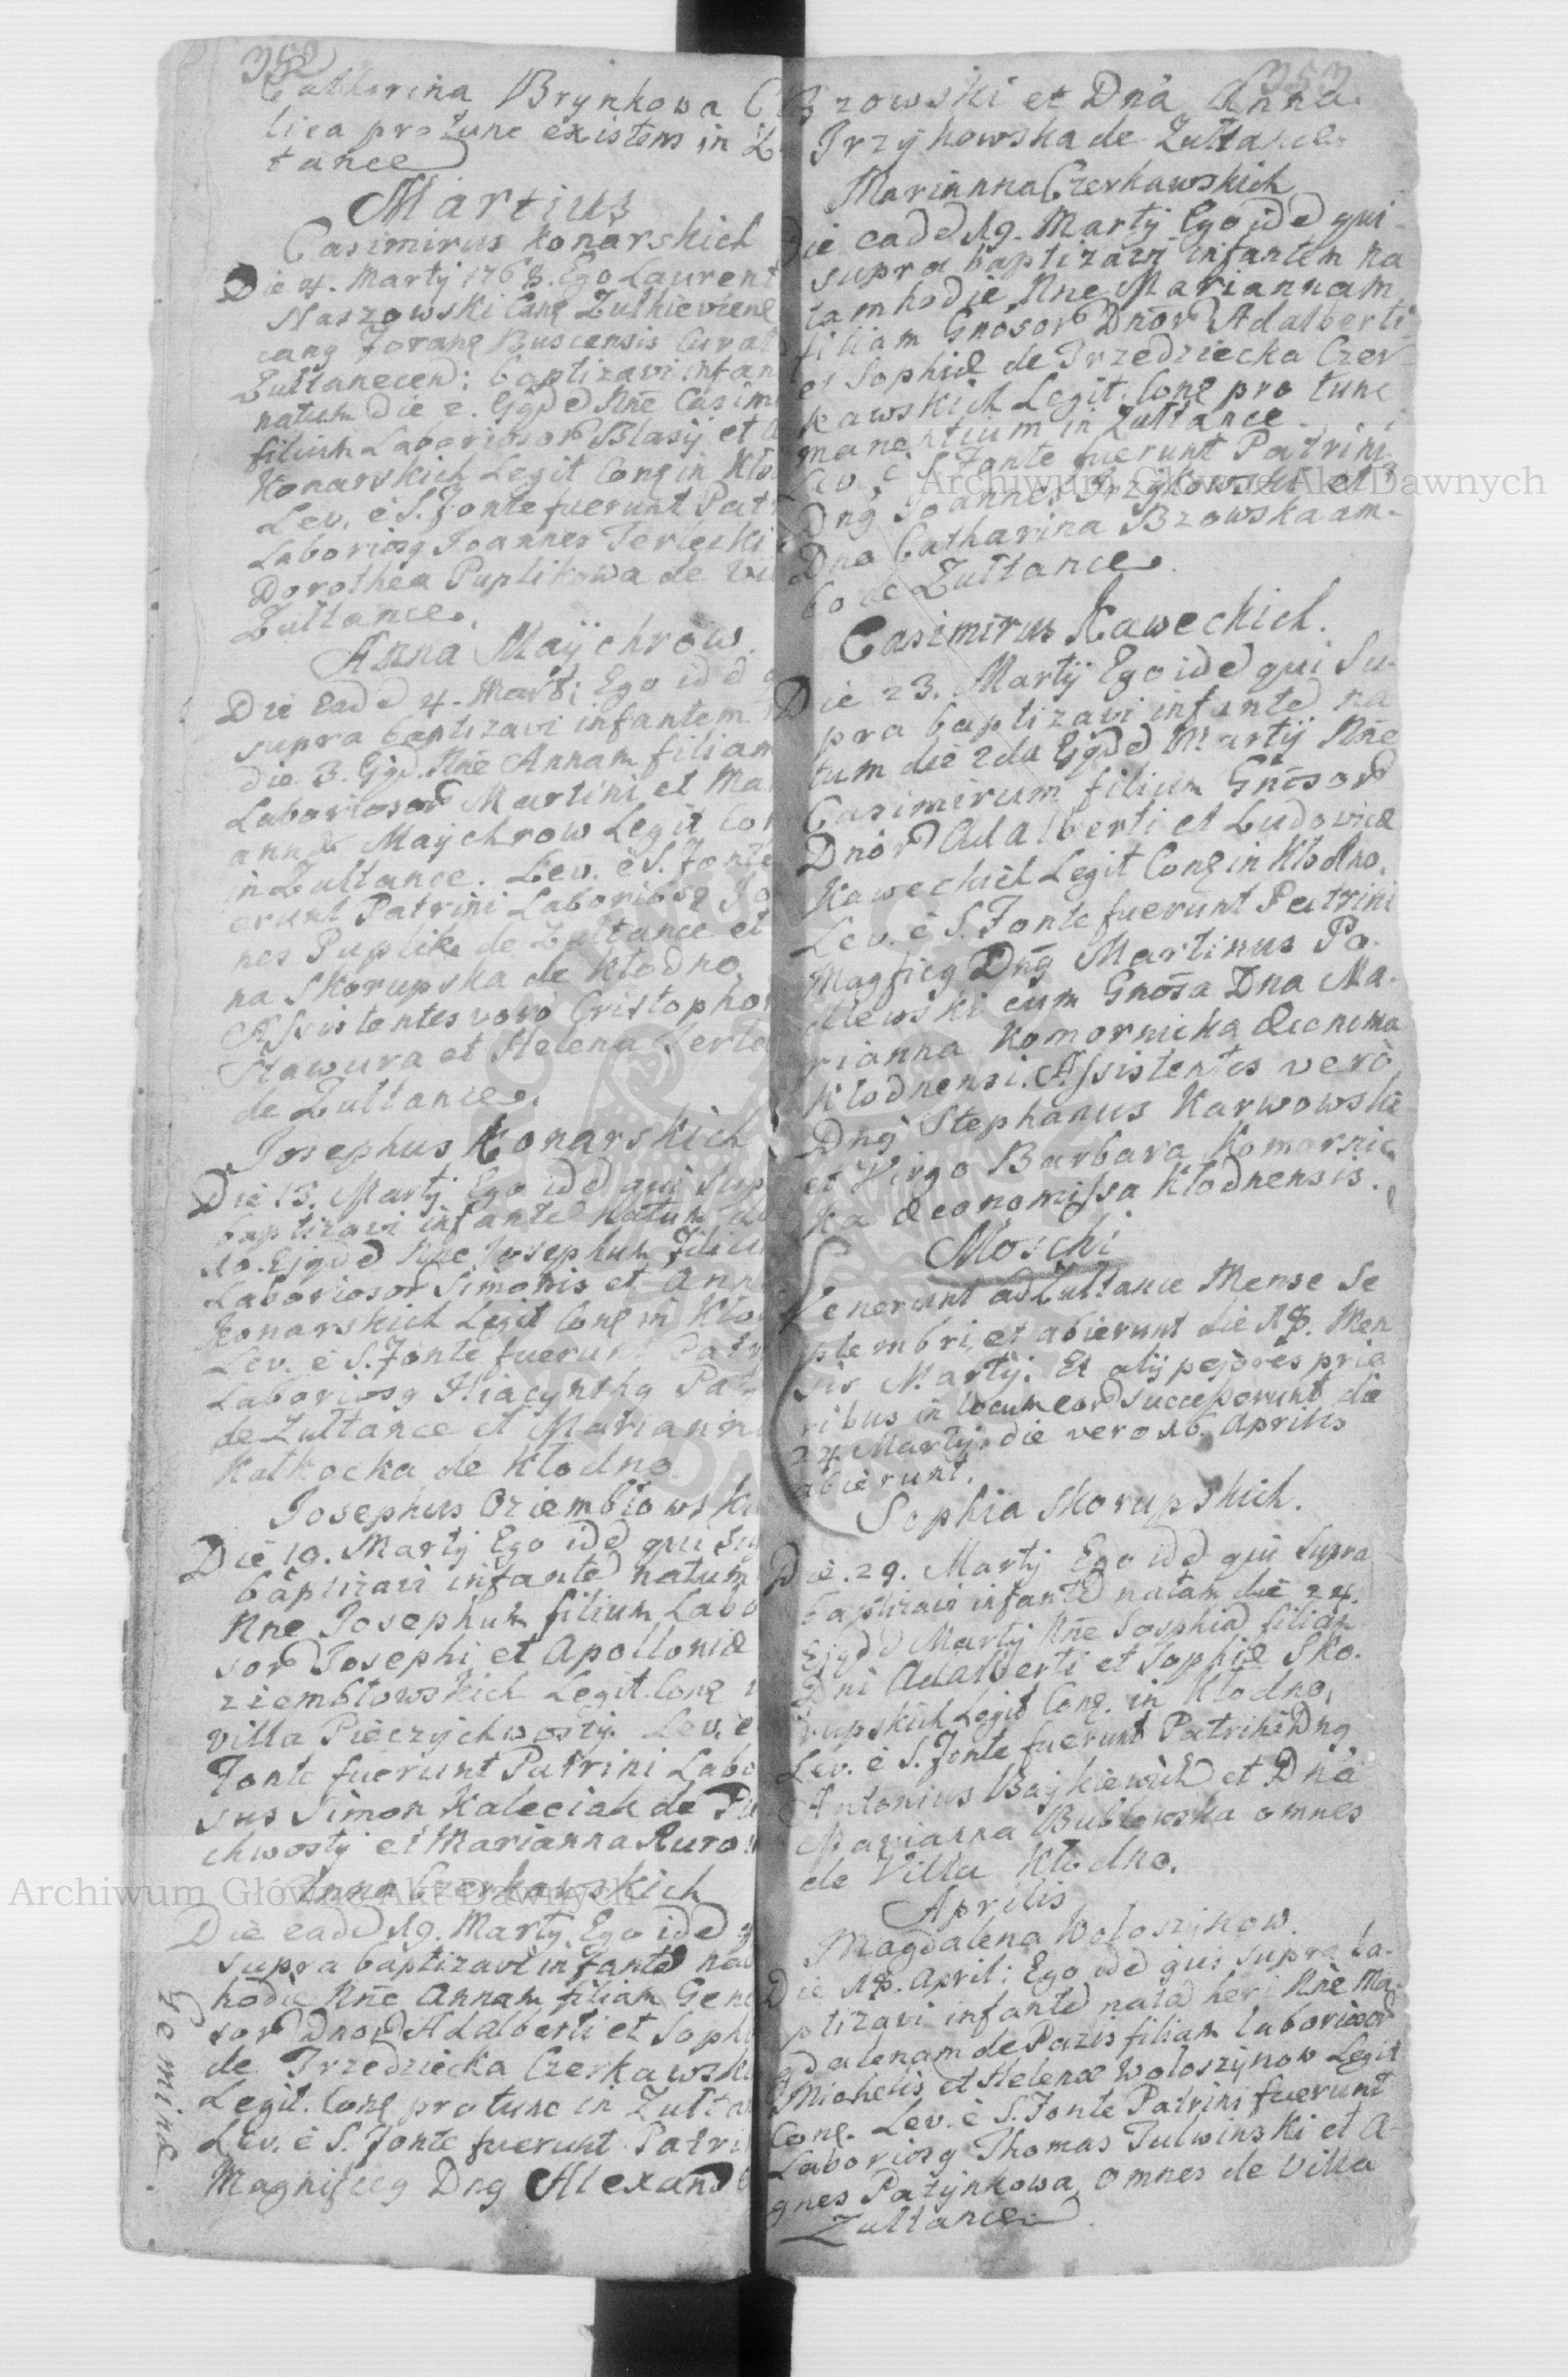 352
Catharina Brynkowa C
lica pro tunc existens in Z
tance
Martius
Casimirus Konarskich
Die 4. Martij 1768. Ego Laurent
Staszowski Canę Zulkieviene
canę Foranę Buscensis Curat
Zultanecen: baptizavi infan
natum die 2. Ejgd Nne Casim
filium Laboriosor Blasij et A
Konarskich Legit Conę in Kło
Lev. è S. Fonte fuerunt Patr
Laboriosg Joannes Terlecki
Dorothea Puplikowa de Vil
Zultance.
Anna Maÿchrow.
Die Ead 4. Marti Ego idd q
supra baptizavi infantem n
die 3. Ejgd. Nne Annam filiam
Laboriosor Martini et Mar
annæ Maychrow Legit Con
in Zultance. Lev. è S. Fonte
erunt Patrini Laboriosg Jo
nes Puplik de Zultance et
na Skorupska de Kłodno.
Assistentes verò Cristophor
Stawura et Helena
de Zultance.
Josephus Konarskich
Die 13. Martij Ego idd qui Sup
baptizavi infante natum die
10. Ejgdd Nne Josephum filiu
Laboriosor Simonis et Ann
Konarskich Legit Conę in Kło
Lev. è S. Fonte fuerunt Patr
Laboriosg Hiacynthg
de Zultance et Mariann
Kałkocka de Kłodno
Josephus Oziembłowski
Die 19. Martij Ego idd qui Su
baptizavi infante natum
Nne Josephum filium Labo
sor Josephi et Apolloniæ
ziembłowskich Legit. Conę i
Villa Pieczychwosty Lev. è
Fonte fuerunt Patrini Labo
sus Simon Kaleciak de Pie
chwosty et Marianna Kuro
Anna Czerkawskich
Die eadd 19. Martij Ego idd q
supra baptizavi infante nat
hodie Nne Annam filiam Gene
sor Dnor Adalberti et Soph
de Trzedziecka Czerkawski
Legit. Conę pro tunc in Zulta
Lev. è S. Fonte fuerunt Patri
Magnificg Dng Alexand
Geminæ
353
Brzowski et Dna Anna
Trzykowska de Zultance
Marianna Czerkawskich
Die eadd 19. Martij Ego idd qui
supra baptizavi infantem na
tam hodie Nne Mariannam
filiam Gnosor Dnor Adalberti
et Sophiæ de Trzedziecka Czer
kawskich Legit. Conę pro tunc
manentium in Zultance.
Lev. è S. Fonte fuerunt Patrini
Dng Joannes Trzykowski et
Dna Catharina Brzowska am-
bo de Zultance.
Casimirus Kaweckich.
Die 23. Martij Ego idd qui Su-
pra baptizavi infante na
tum die 2da Ejgdd Martij Nne
Casimirum filium Gnosor
Dnor Adalberti et Ludovicæ
Kaweckich Legit Conę in Kłodno.
Lev. è S. Fonte fuerunt Patrini
Magficg Dng Martinus Pa-
dlewski cum Gnosa Dna Ma-
rianna Komornicka Œconoma
Klodnensi. Assistentes verò
Dng Stephanus Karwowski
et Virgo Barbara Komornic
ka Œconomissa Kłodnensis.
Moschi
Venerunt ad Zultance Mense Se
ptembri, et abierunt die 18. Men
sis Martij. Et alij pejores prio
ribus in locum eor successerunt die
24 Martij. die vero 16. Aprilis
abierunt.
Sophia Skorupskich.
Die. 29. Martij Ego idd qui supra
baptizavi infante natam die 24.
Ejgdd Martij Nne Sophia filiam
Dni Adalberti et Sophiæ Sko-
rupskich Legit Conę. in Kłodno,
Lev. è S. Fonte fuerunt Patrini Dng
Antonius Baykiewich et Dna
Marianna Bublowska omnes
de Villa Kłodno.
Aprilis
Magdalena Woloszynow.
Die 18. Aprili Ego idd qui supra ba-
ptizavi infante nata heri Nne Ma-
gdalenam de Pazis filiam laboriosor
Michelis et Helenæ Woloszynow Legit
Conę. Lev. è S. Fonte Patrini fuerunt
Laboriosg Thomas Tulwinski et A-
gnes Patynkowa omnes de Villa
Zultance.
Archiwum Główne Akt Dawnych
Archiwum Główne Akt Dawnych